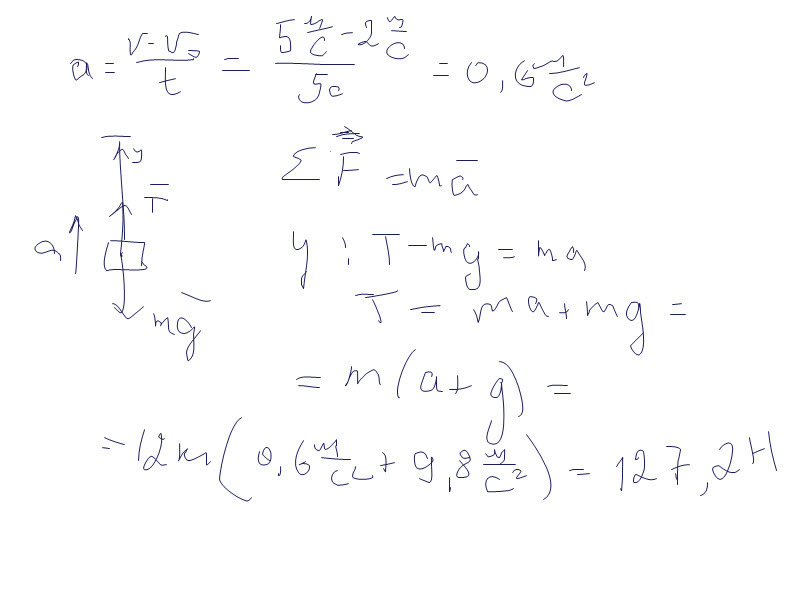 a = (v - v₀)/t = (5 м/с - 2 м/с)/5с = 0,6 м/с²
y
T̅
a
mg̅
ΣF⃗ = ma̅
y : T - mg = ma
T = ma + mg =
= m(a + g) =
= 12кг(0,6 м/с² + 9,8 м/с²) = 127,2Н